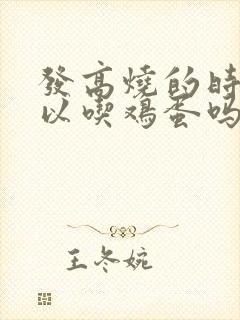 發高燒的時
以喫鸡蛋吗
王冬婉